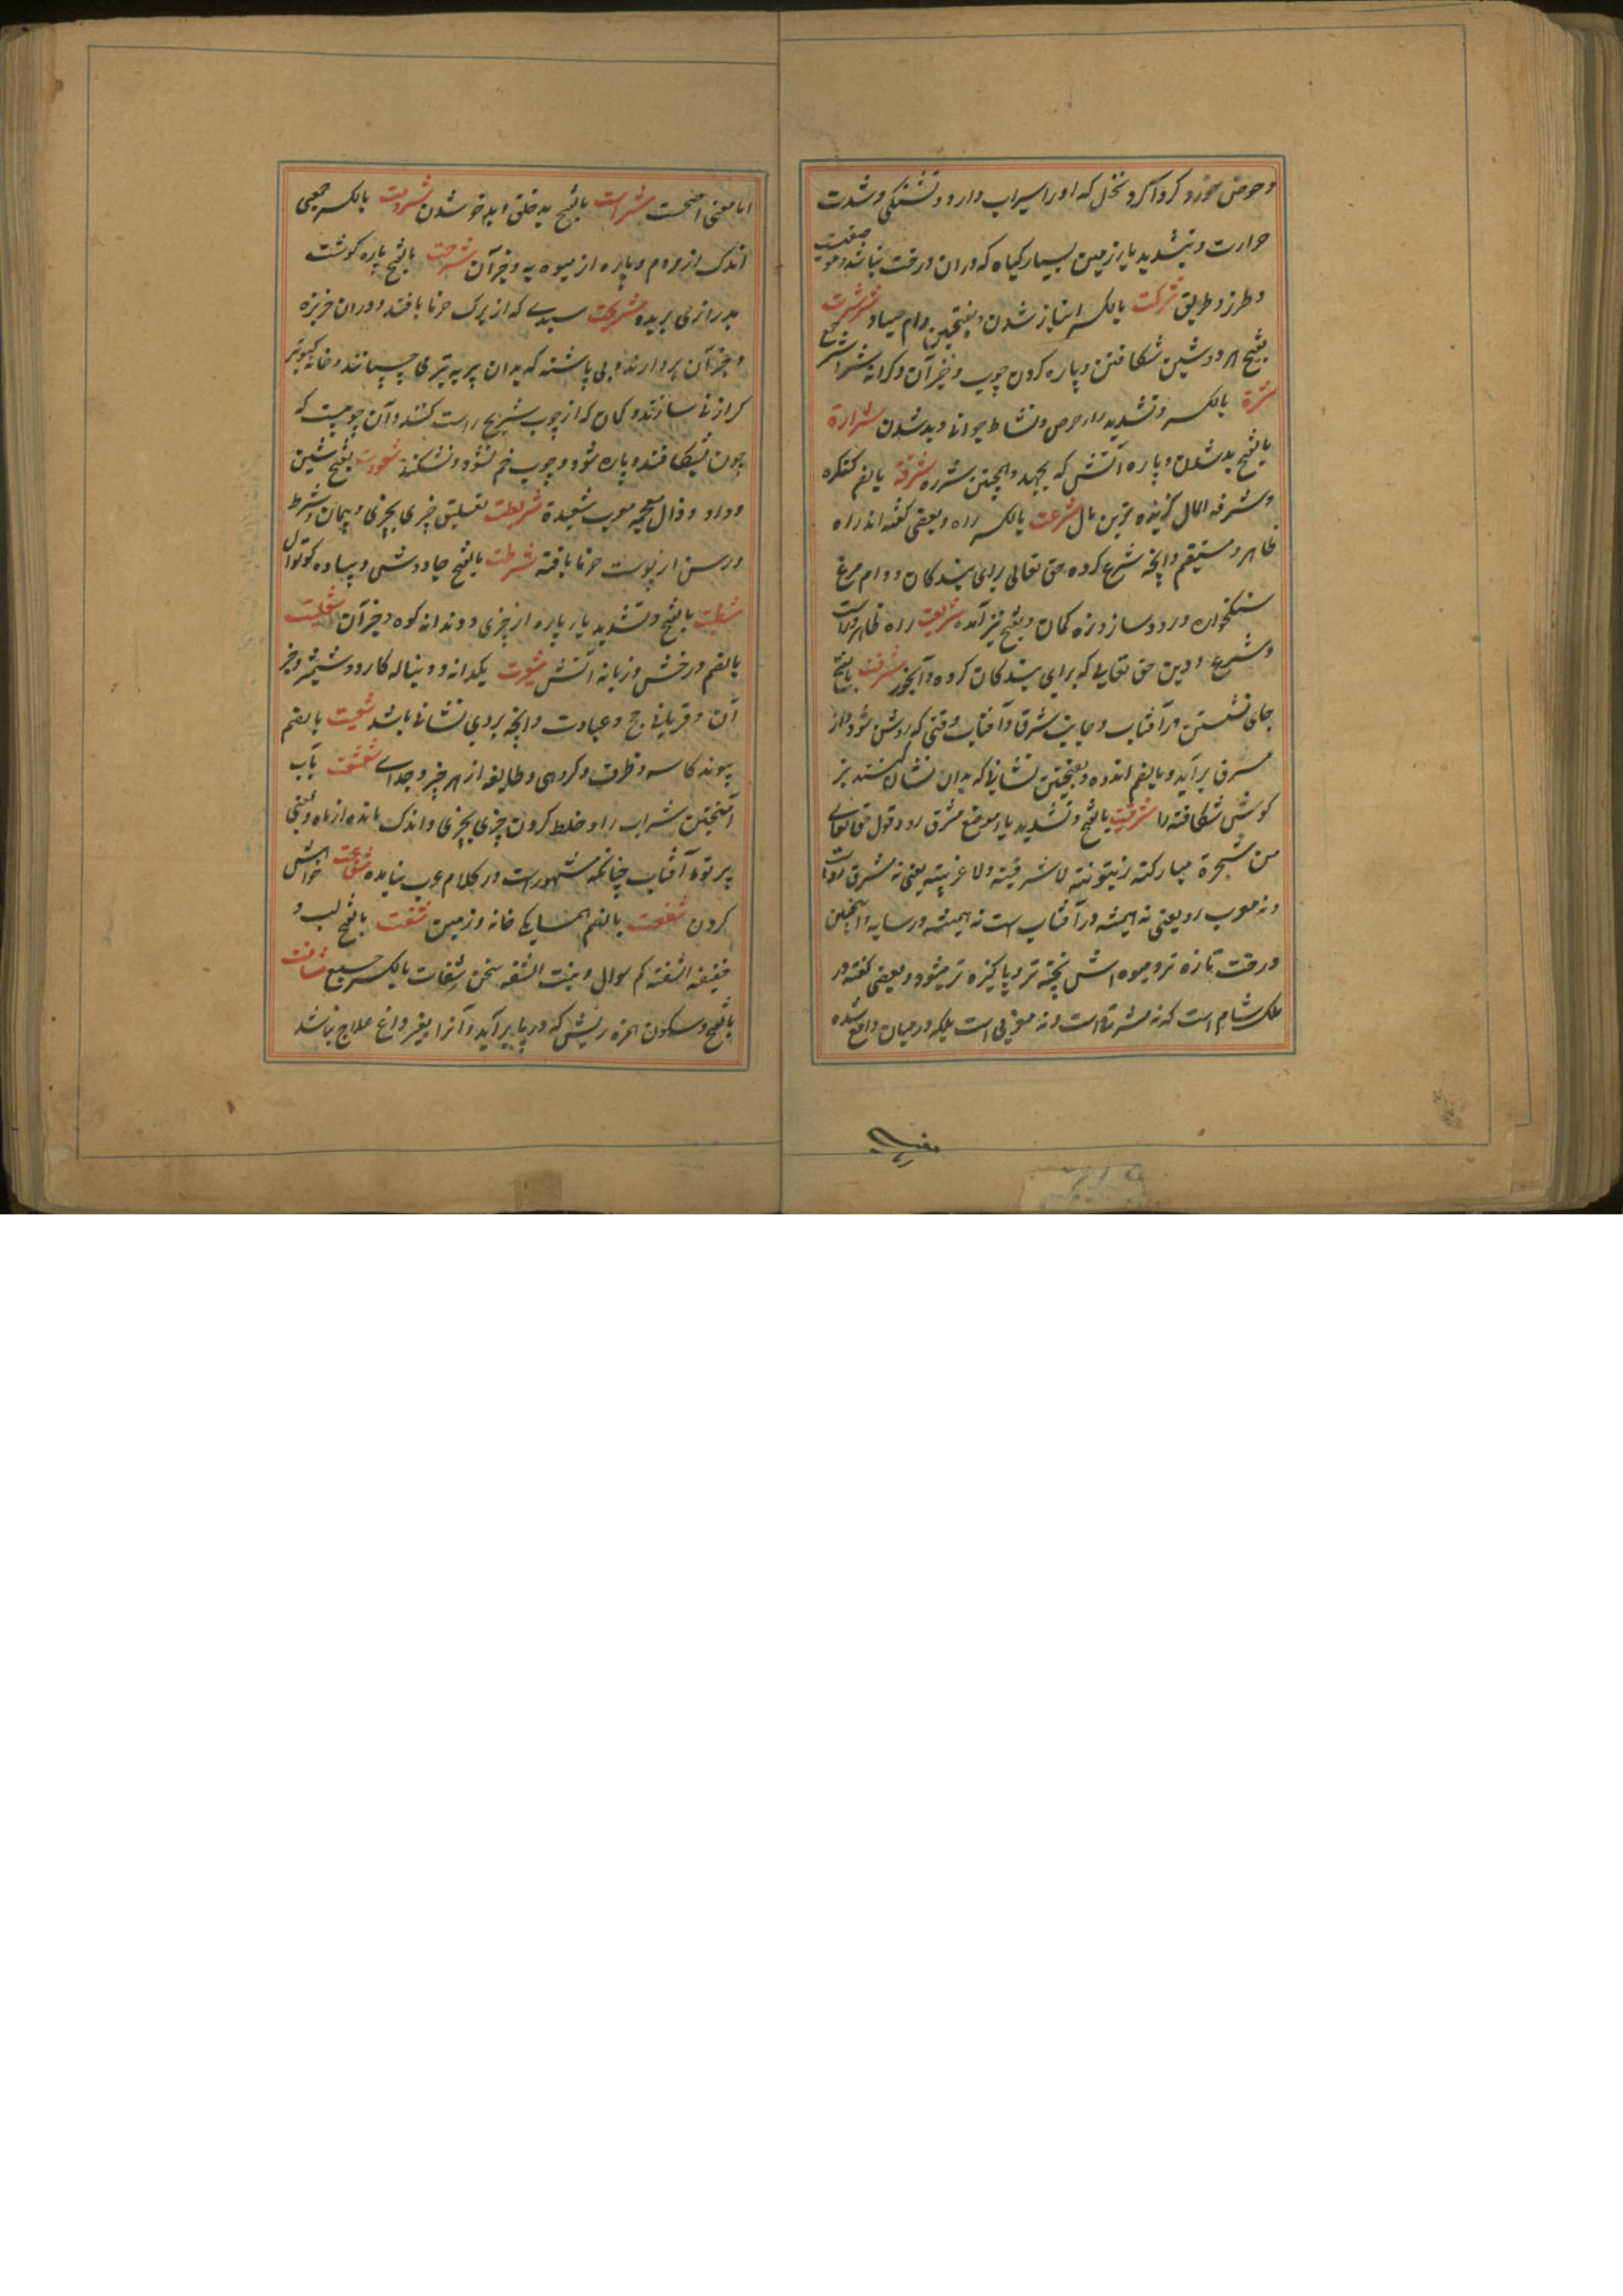 و حوض خورد کردا کرد نخل که او را سیراب دارد و تشنکی و شدت
حرارت و بتشدید یا زمین بسیار کیاه که در ان درخت نباشد و موضعیست
و طرز و طریق شرکت بالکسر انباز شدن و بفتحین دام صیاد شرشرت
بفتح هر دو شین شکافتن و پاره کردن چوب و غیر آن و کرانه شراشر جمع
شرة بالکسر و تشدید را حرص و نشاط جوانی و بد شدن شرارة
بالفتح بد شدن و پاره آتش که بجهد و همچنین شرره شرفة بالضم کنکره
و شرفه المال کزیده ترین مال شرعت بالکسر راه و بعضی کفته اند راه
ظاهر و مستقیم و انچه شرع کرده حق تعالی برای بندکان و دام مرغ
سنکخواره و رود ساز و زه کمان و بفتح نیز آمده شریعت راه ظاهر و راست
و شرع و دین حق تعالی که برای بندکان کرده و آبخور شرقت بالفتح
جای نشستن در آفتاب و جانب شرق و آفتاب وقتی که روشن شود و از
مشرق برآید و بالضم اندوه و بفتحتین نشانی که بدان نشان کنند بز
کوش شکافته را شرقیت بالفتح و تشدید یا موضع مشرق رو و قول حق تعالی
من شجرة مبارکة زیتونة لا شرقیة ولا غربیة یعنی نه مشرق رو است
و نه مغرب رو یعنی نه همیشه در آفتاب است نه همیشه در سایه و اینچنین
درخت تازه تر و میوه اش پخته تر و پاکیزه تر میشود و بعضی کفته در
ملک شام است که نه مشرقی است و نه مغربی است بلکه در میان واقع شده
اما معنی اصحست شراست بالفتح بد خلقی و بدخو شدن بالکسر جمعی
اندک از مردم و پاره از میوه به و غیر آن شرحت بالفتح پاره کوشت
بدرازی بریده شریحت سبدی که از برک خرما بافند و در ان خربزه
و جز آن بردارند و پی پاشنه که بدان پر به تیر می چسپانند و خانه کبوتر
که از نی سازند و کمان که از چوب شریح راست کنند و آن چوبیست که
چون بشکافند دو پاره شود و چوب خم نشود و نشکند شعوذت بفتح شین
و واو و ذال معجمه معرب شعبدة شریطت تعلیق چیزی بچیزی و پیمان و شرط
و رسن از پوست خرما بافته شرطت بالفتح جادوشی و پیاده کوتوال
شظیت بالفتح و تشدید یا پاره از چیزی و دندانه کوه و غیر آن شعلت
بالضم درخش و زبانه آتش شعیرت یکدانه و دنباله کارد و شمشیر و غیر
آن و قربانی حج و عبادت و انچه بر وی نشانی باشد شعبت بالضم
پیوند کاسه و ظرف و کروهی و طایفه از هر چیز و جدای شعشعت بآب
آمیختن شراب را و خلط کردن چیزی بچیزی و اندک مانده از ماه و بمعنی
پرتو آفتاب چنانکه مشهور است در کلام عرب نیامده شفاعت خواهش
کردن شفعت بالضم همسایکی خانه و زمین شفت بالفتح لب و
خفیفة الشفة کم سوال و بنت الشفه سخن شفات بالکسر جمع شافت
بالفتح و سکون همزه ریشی که در پا برآید و آنرا بغیر داغ علاج نباشد